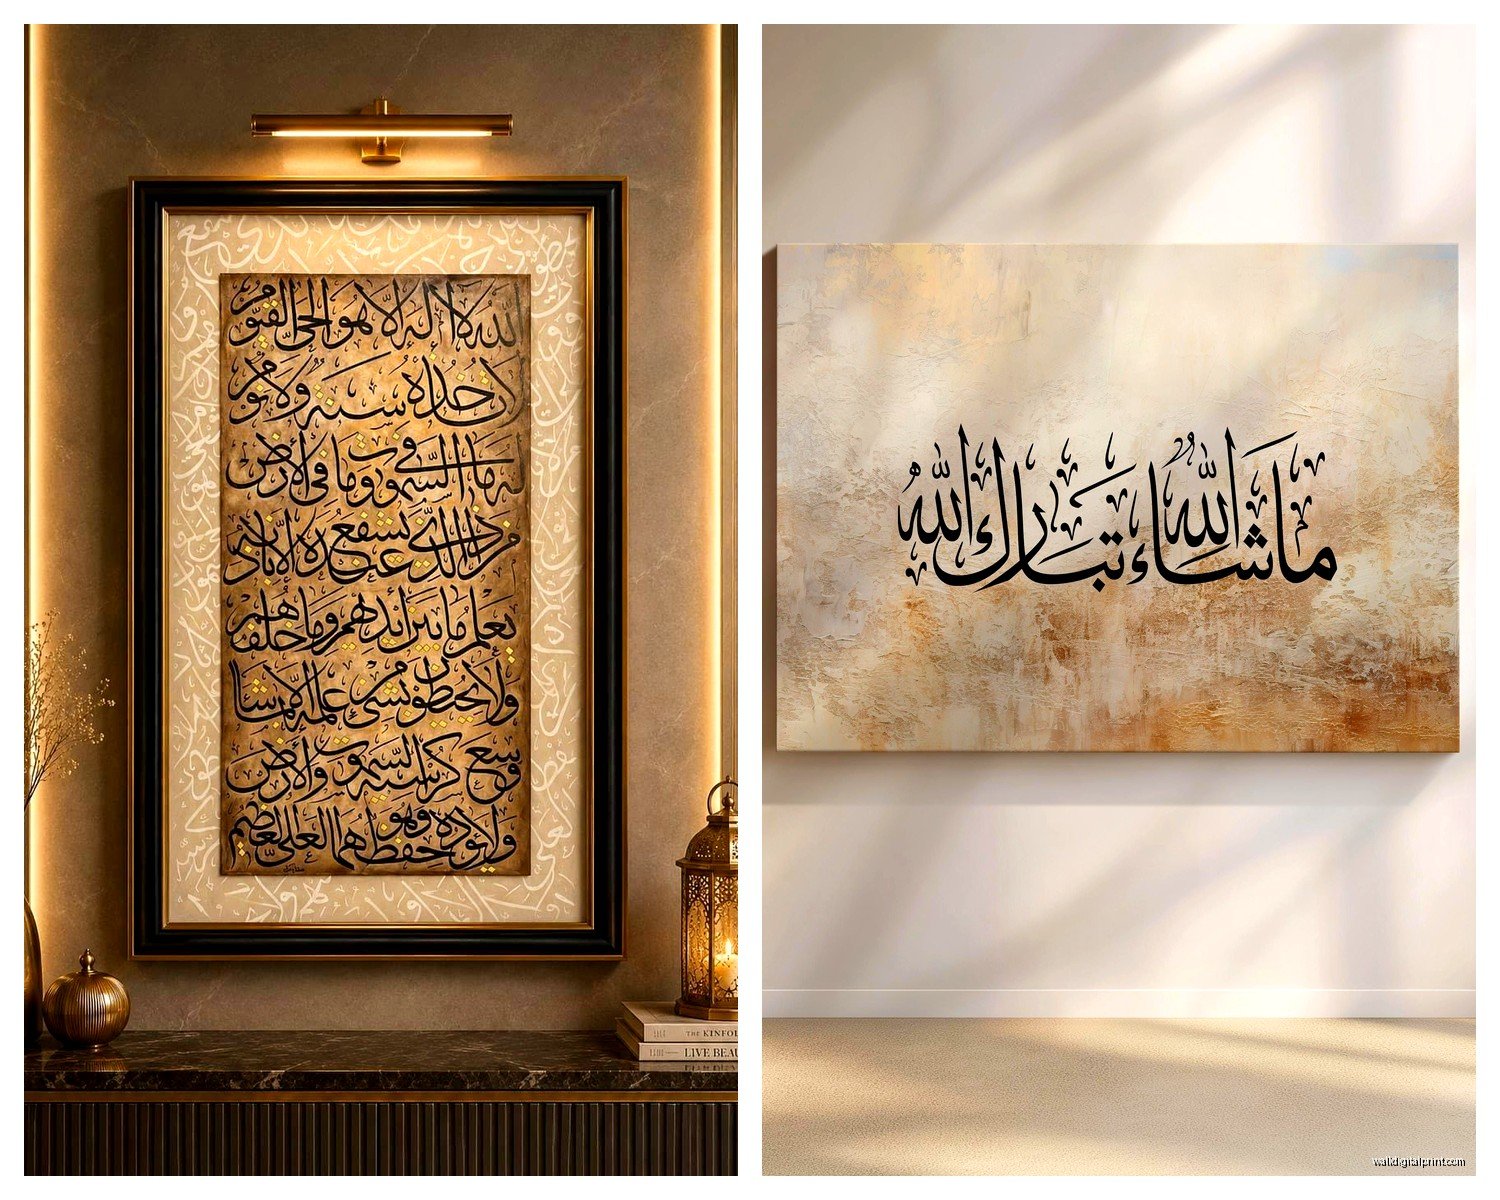 الله لا إله إلا هو الحي القيوم
لا تأخذه سنة ولا نوم
له ما في السموت وما في الأرض
من ذا الذي يشفع عنده إلا بإذنه
يعلم ما بين أيديهم وما خلفهم
ولا يحيطون بشيء من علمه إلا بما شا
وسع كرسيه السموت والأرض
ولا يؤده حفظهما وهو العلي العظيم
THE KINFOL
LIVE BEAU
ما شاء الله تبارك الله
walldigitalprint.com